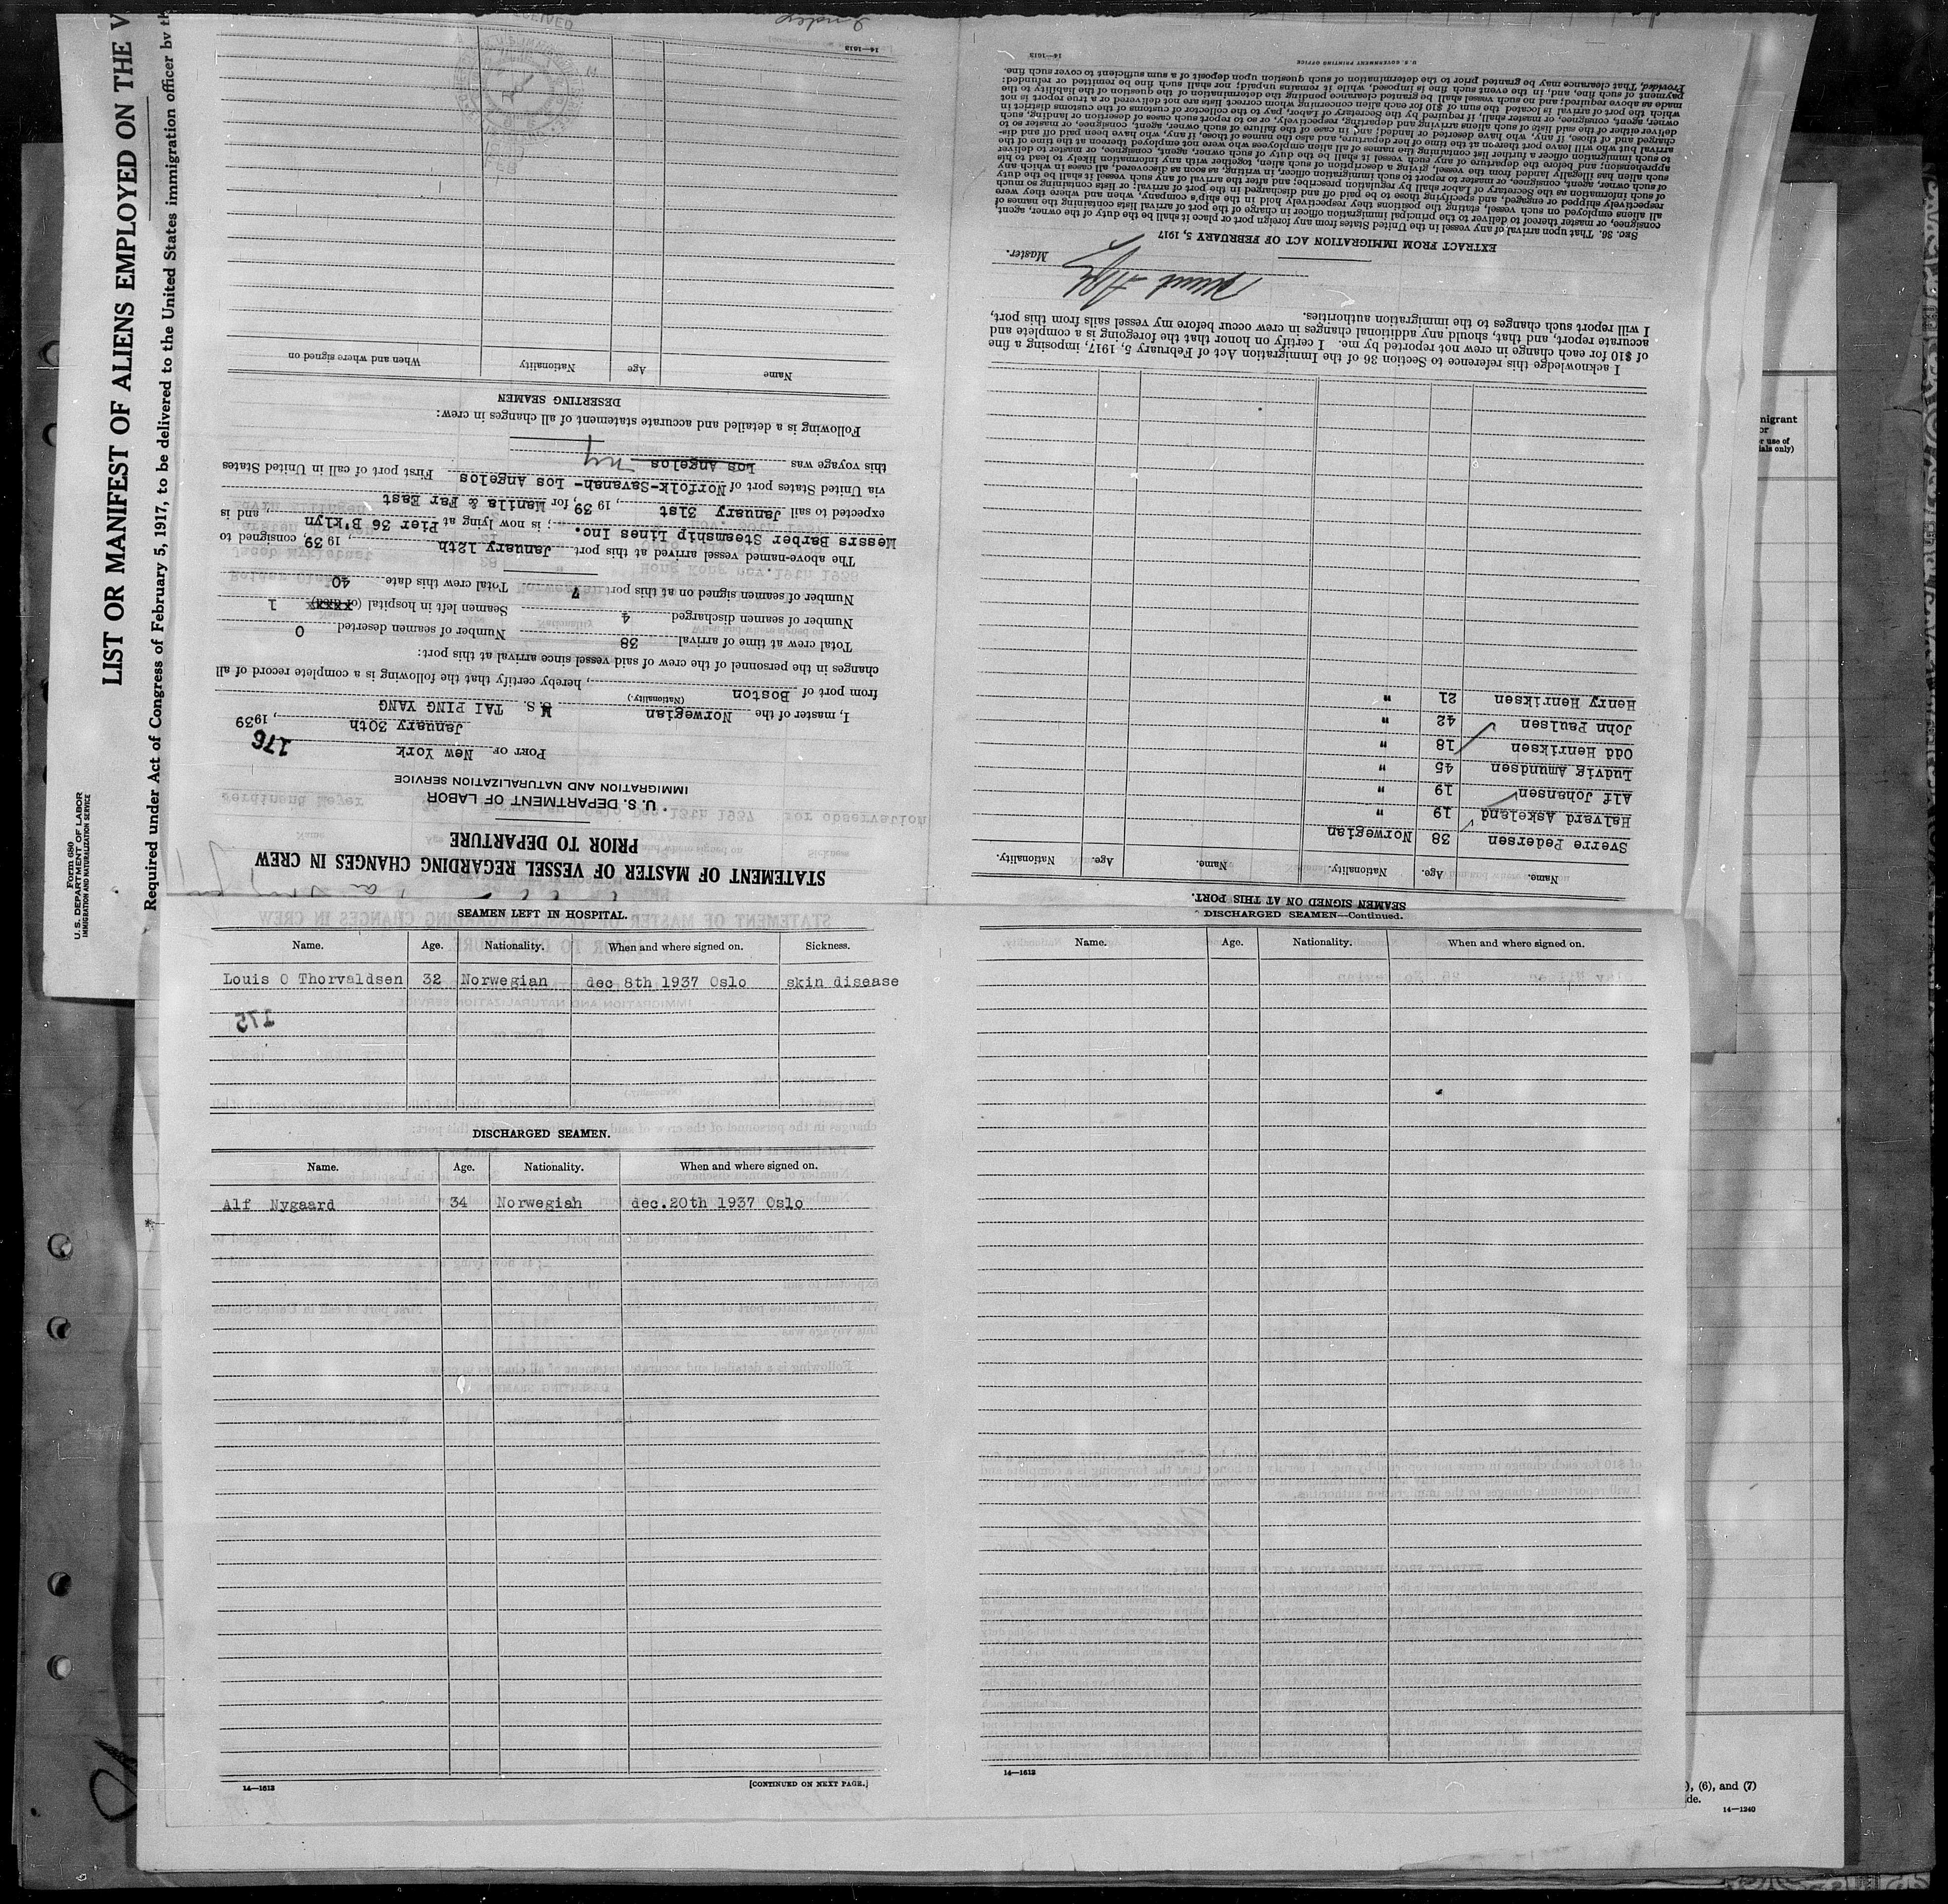 Form 680
U. S. DEPARTMENT OF LABOR
IMMIGRATION AND NATURALIZATION SERVICE
LIST OR MANIFEST OF ALIENS EMPLOYED ON THE V
Required under Act of Congress of February 5, 1917, to be delivered to the United States immigration officer by th
STATEMENT OF MASTER OF VESSEL REGARDING CHANGES IN CREW
PRIOR TO DEPARTURE
U. S. DEPARTMENT OF LABOR
IMMIGRATION AND NATURALIZATION SERVICE
176
PORT OF New York
January 30th, 1939
I, master of the Norwegian M S. TAI PING YANG
(Nationality.)
from port of Boston, hereby certify that the following is a complete record of all
changes in the personnel of the crew of said vessel since arrival at this port:
Total crew at time of arrival 38 Number of seamen deserted 0
Number of seamen discharged 4 Seamen left in hospital 1
Number of seamen signed on at this port 7 Total crew this date 40
The above-named vessel arrived at this port January 12th, 1939, consigned to
Messrs Barber Steamship Lines Inc.; is now lying at Pier 36 B'klyn, and is
expected to sail January 31st, 1939, for Manila & Far East
via United States port of Norfolk-Savanah- Los Angelos First port of call in United States
this voyage was Los Angelos NY
Following is a detailed and accurate statement of all changes in crew:
DESERTING SEAMEN
Name Age Nationality When and where signed on
14—1613
SEAMEN SIGNED ON AT THIS PORT.
Name. Age. Nationality. Name. Age. Nationality.
Sverre Pedersen 38 Norwegian
Halvard Askeland 19 "
Alf Johansen 19 "
Ludvig Amundsen 45 "
Odd Henriksen 18 "
John Paulsen 42 "
Henry Henriksen 21 "
I acknowledge this reference to Section 36 of the Immigration Act of February 5, 1917, imposing a fine
of $10 for each change in crew not reported by me. I certify on honor that the foregoing is a complete and
accurate report, and that, should any additional changes in crew occur before my vessel sails from this port,
I will report such changes to the immigration authorities.
Master.
EXTRACT FROM IMMIGRATION ACT OF FEBRUARY 5, 1917
SEC. 36. That upon arrival of any vessel in the United States from any foreign port or place it shall be the duty of the owner, agent,
consignee, or master thereof to deliver to the principal immigration officer in charge of the port of arrival lists containing the names of
all aliens employed on such vessel, stating the positions they respectively hold in the ship's company, when and where they were
respectively shipped or engaged, and specifying those to be paid off and discharged in the port of arrival; or lists containing so much
of such information as the Secretary of Labor shall by regulation prescribe; and after the arrival of any such vessel it shall be the duty
of such owner, agent, consignee, or master to report to such immigration officer, in writing, as soon as discovered, all cases in which any
such alien has illegally landed from the vessel, giving a description of such alien, together with any information likely to lead to his
apprehension; and before the departure of any such vessel it shall be the duty of such owner, agent, consignee, or master to deliver
to such immigration officer a further list containing the names of all alien employees who were not employed thereon at the time of the
arrival but who will leave port thereon at the time of her departure, and also the names of those, if any, who have been paid off and dis-
charged and of those, if any, who have deserted or landed; and in case of the failure of such owner, agent, consignee, or master so to
deliver either of the said lists of such aliens arriving and departing, respectively, or so to report such cases of desertion or landing, such
owner, agent, consignee, or master shall, if required by the Secretary of Labor, pay to the collector of customs of the customs district in
which the port of arrival is located the sum of $10 for each alien concerning whom correct lists are not delivered or a true report is not
made as above required; and no such vessel shall be granted clearance pending the determination of the question of the liability to the
payment of such fine, and, in the event such fine is imposed, while it remains unpaid; nor shall such fine be remitted or refunded:
Provided, That clearance may be granted prior to the determination of such question upon deposit of a sum sufficient to cover such fine.
U. S. GOVERNMENT PRINTING OFFICE
14—1613
SEAMEN LEFT IN HOSPITAL.
Name. Age. Nationality. When and where signed on. Sickness.
Louis O Thorvaldsen 32 Norwegian dec 8th 1937 Oslo skin disease
175
DISCHARGED SEAMEN.
Name. Age. Nationality. When and where signed on.
Alf Nygaard 34 Norwegian dec.20th 1937 Oslo
14—1613
[CONTINUED ON NEXT PAGE.]
DISCHARGED SEAMEN—Continued.
Name. Age. Nationality. When and where signed on.
14—1613
nigrant
or
r use of
ials only)
), (6), and (7)
de.
14—1240